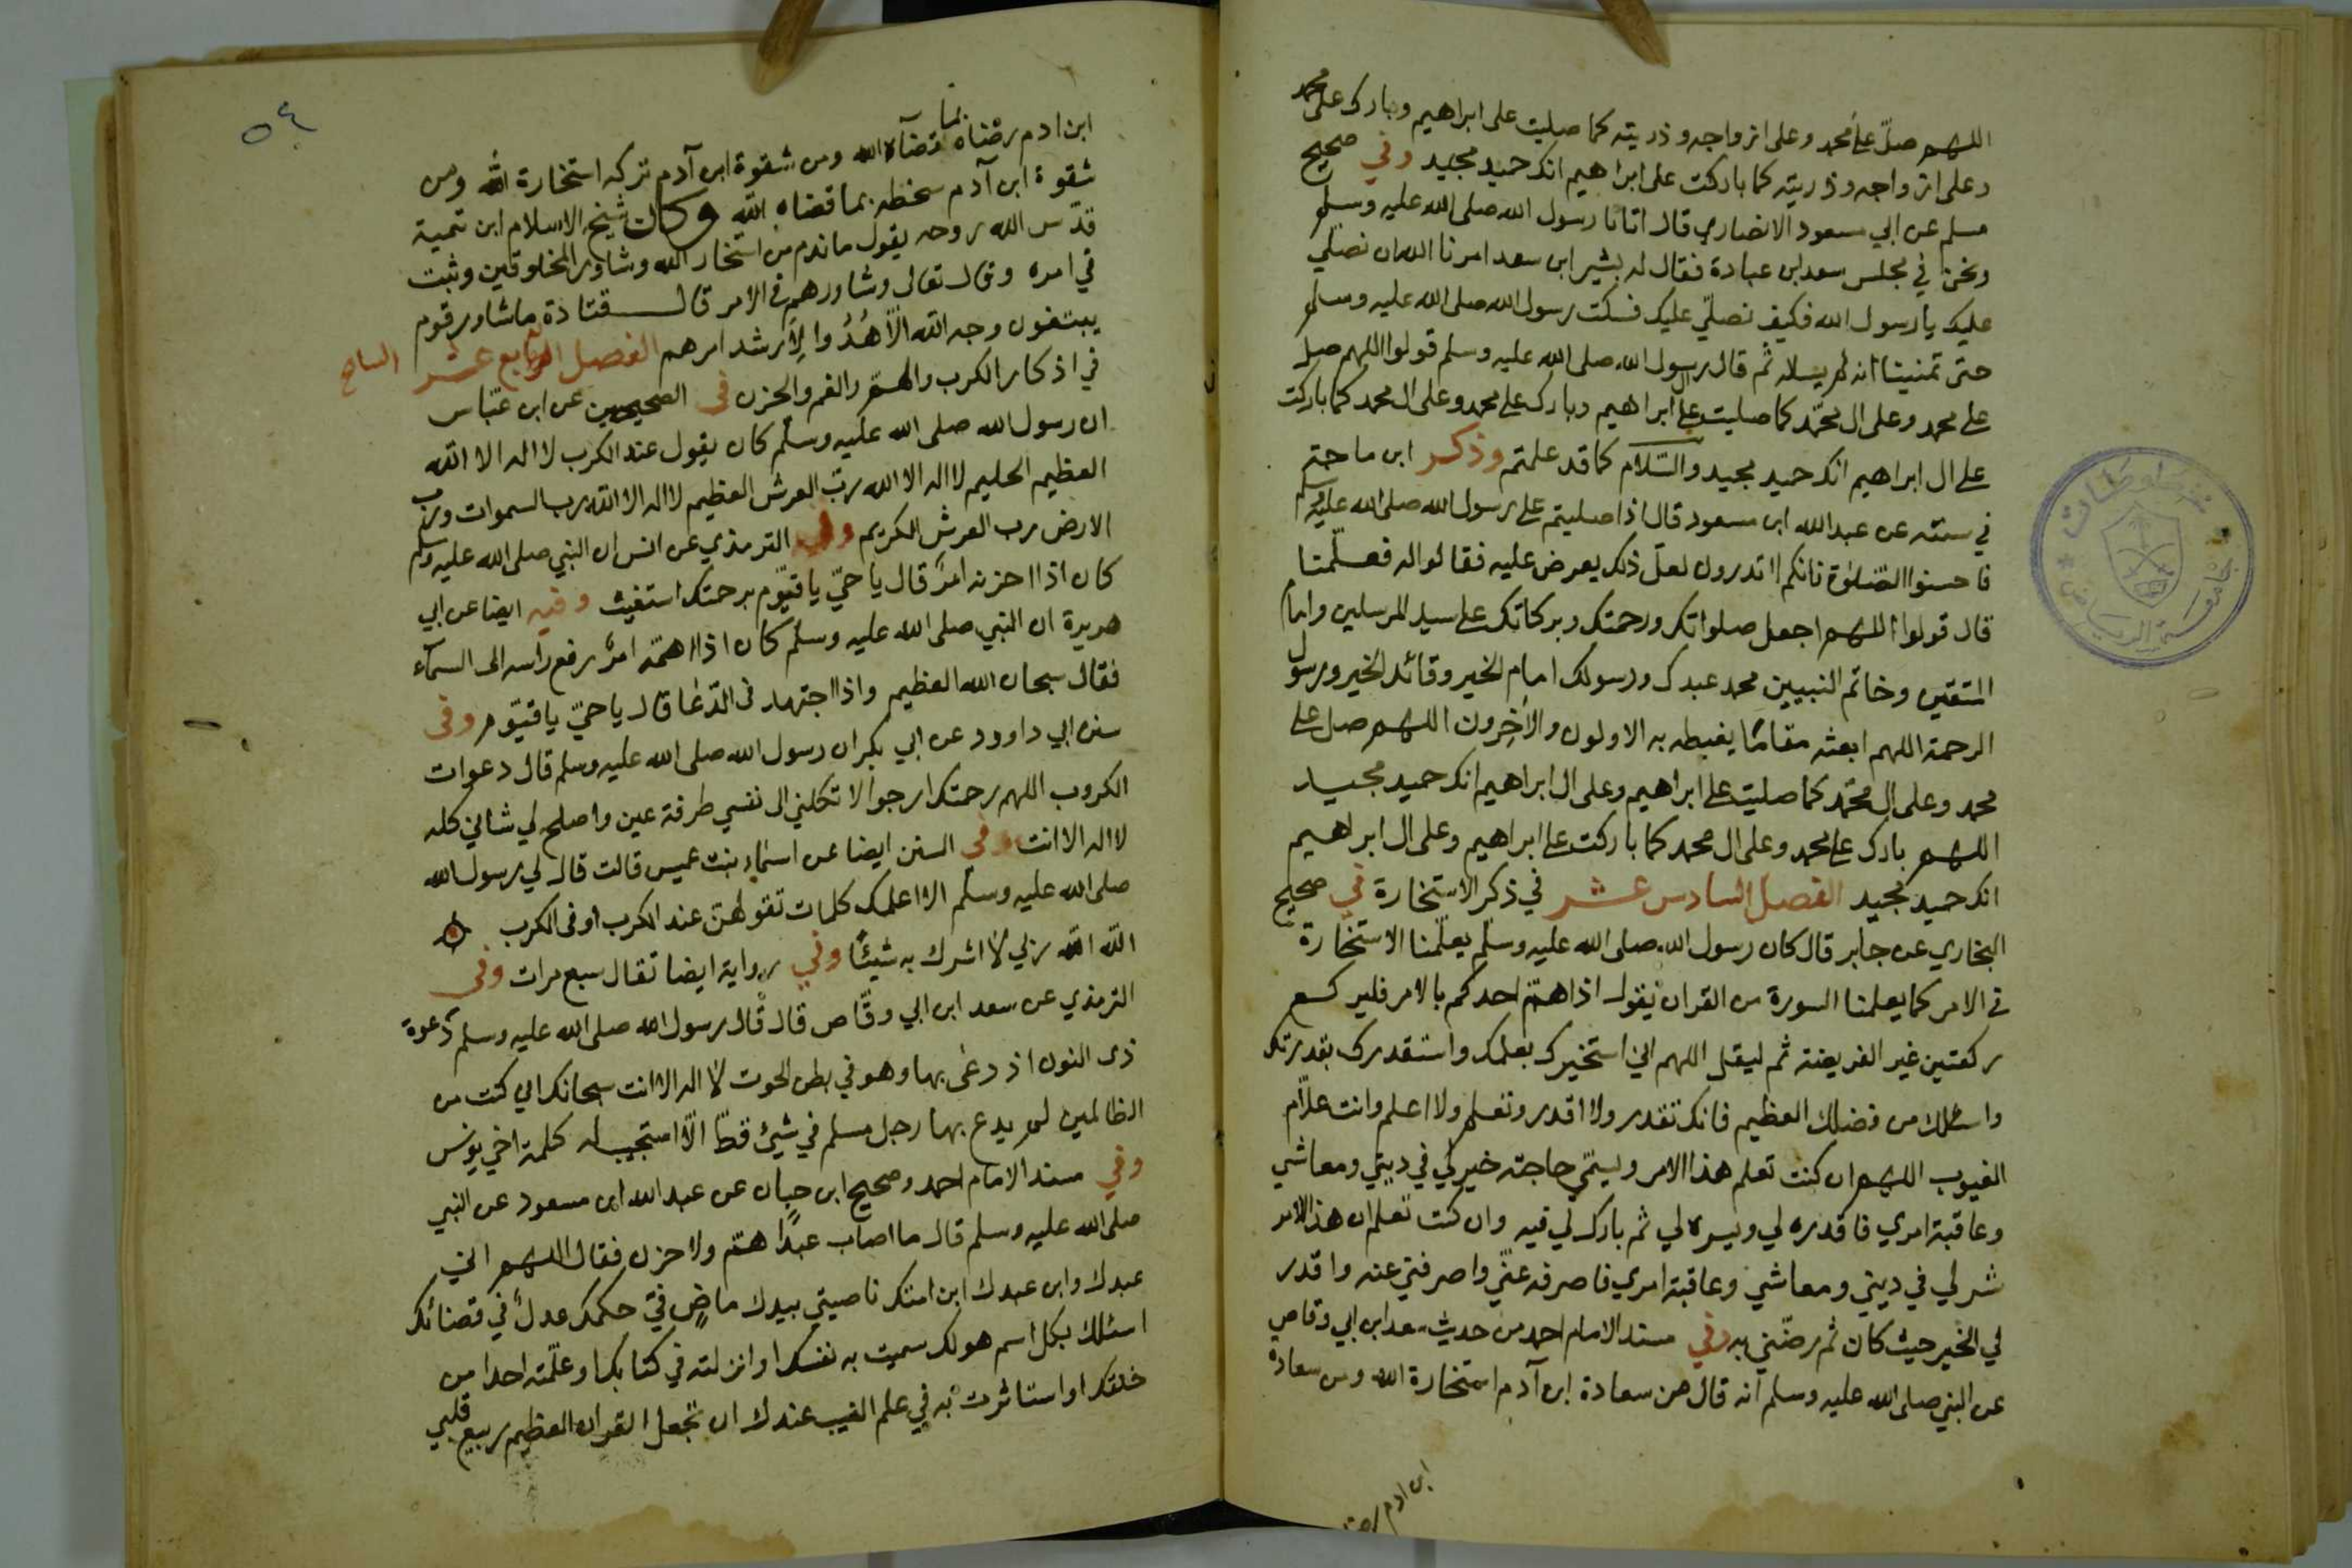 اللهم صلّ على محمد وعلى ازواجه وذريته كما صليت على ابراهيم وبارك على محمد
وعلى ازواجه وذريته كما باركت على ابراهيم انك حميد مجيد وفي صحيح
مسلم عن ابي مسعود الانصاري قال اتانا رسول الله صلى الله عليه وسلم
ونحن في مجلس سعد بن عبادة فقال له بشير ابن سعد امرنا الله ان نصلي
عليك يا رسول الله فكيف نصلّي عليك فسكت رسول الله صلى الله عليه وسلم
حتى تمنينا انه لم يسله ثم قال رسول الله صلى الله عليه وسلم قولوا اللهم صل
على محمد وعلى ال محمّد كما صليت على ال ابراهيم وبارك على محمد وعلى ال محمد كما باركت
على ال ابراهيم انك حميد مجيد والسّلام كما قد علمتم وذكر ابن ماجه
في سننه عن عبد الله ابن مسعود قال اذا صليتم على رسول الله صلى الله عليه وسلم
فاحسنوا الصّلوة فانكم لا تدرون لعلّ ذلك يعرض عليه فقالوا له فعلّمنا
قال قولوا اللهم اجعل صلواتك ورحمتك وبركاتك على سيد المرسلين وامام
المتقين وخاتم النبيين محمد عبدك ورسولك امام الخير وقائد الخير ورسول
الرحمة اللهم ابعثه مقامًا يغبطه به الاولون والاخرون اللهم صل على
محمد وعلى ال محمّد كما صليت على ابراهيم وعلى ال ابراهيم انك حميد مجيد
اللهم بارك على محمد وعلى ال محمد كما باركت على ابراهيم وعلى ال ابراهيم
انك حميد مجيد الفصل السادس عشر في ذكر الاستخارة في صحيح
البخاري عن جابر قال كان رسول الله صلى الله عليه وسلّم يعلّمنا الاستخارة
في الامر كما يعلمنا السورة من القران يقول اذا همّ احدكم بالامر فليركع
ركعتين غير الفريضة ثم ليقل اللهم اني استخيرك بعلمك واستقدرك بقدرتك
واسئلك من فضلك العظيم فانك تقدر ولا اقدر وتعلم ولا اعلم وانت علاّم
الغيوب اللهم ان كنت تعلم هذا الامر ويسمّي حاجته خير لي في ديني ومعاشي
وعاقبة امري فاقدره لي ويسره لي ثم بارك لي فيه وان كنت تعلم ان هذا الامر
شر لي في ديني ومعاشي وعاقبة امري فاصرفه عنّي واصرفني عنه واقدر
لي الخير حيث كان ثم رضّني به وفي مسند الامام احمد من حديث سعد ابن ابي وقاص
عن النبي صلى الله عليه وسلم انه قال من سعادة ابن آدم استخارة الله ومن سعادة
ابن ادم
٥٤
ابن ادم رضاه بما قضآه الله ومن شقوة ابن آدم تركه استخارة الله ومن
شقوة ابن آدم سخطه بما قضاه الله وكان شيخ الاسلام ابن تيمية
قدّس الله روحه يقول ما ندم من استخار الله وشاور المخلوقين وثبت
في امره وقال تعالى وشاورهم في الامر قال قتادة ما شاور قوم
يبتغون وجه الله الاّ هُدُوا لِاَرشد امرهم الفصل السابع عشر السابع
في اذكار الكرب والهمّ والغم والحزن في الصحيحين عن ابن عبّاس
ان رسول الله صلى الله عليه وسلّم كان يقول عند الكرب لا اله الا الله
العظيم الحليم لا اله الا الله ربّ العرش العظيم لا اله الا الله رب السموات ورب
الارض رب العرش الكريم وفي الترمذي عن انس ان النبي صلى الله عليه وسلم
كان اذا احزنه امرٌ قال يا حيّ يا قيّوم برحمتك استغيث وفيه ايضا عن ابي
هريرة ان النبي صلى الله عليه وسلّم كان اذا اهمّه امرٌ رفع راسه الى السمآء
فقال سبحان الله العظيم واذا اجتهد في الدّعا قال يا حيّ يا قيّوم وفي
سنن ابي داوود عن ابي بكر ان رسول الله صلى الله عليه وسلم قال دعوات
الكروب اللهم رحمتك ارجوا لا تكلني الى نفسي طرفة عين واصلح لي شاني كله
لا اله الا انت وفي السنن ايضا عن اسماء بنت عميس قالت قال لي رسول الله
صلى الله عليه وسلّم الا اعلمك كلمات تقولهن عند الكرب او في الكرب
الله الله ربي لا اشرك به شيئًا وفي رواية ايضا تقال سبع مرات وفي
الترمذي عن سعد ابن ابي وقّاص قال قال رسول الله صلى الله عليه وسلم دعوة
ذى النون اذ دعى بها وهو في بطن الحوت لا اله الا انت سبحانك اني كنت من
الظالمين لم يدع بها رجل مسلم في شيئ قطّ الاّ استجيب له كلمة اخي يونس
وفي مسند الامام احمد وصحيح ابن حبان عن عبد الله ابن مسعود عن النبي
صلى الله عليه وسلم قال ما اصاب عبدًا همّ ولا حزن فقال اللهم اني
عبدك وابن عبدك ابن امتك ناصيتي بيدك ماضٍ فيّ حكمك عدلٌ في قضائك
اسئلك بكل اسم هو لك سميت به نفسك او انزلته في كتابك او علّمته احدا من
خلقك او استاثرت به في علم الغيب عندك ان تجعل القران العظيم ربيع قلبي